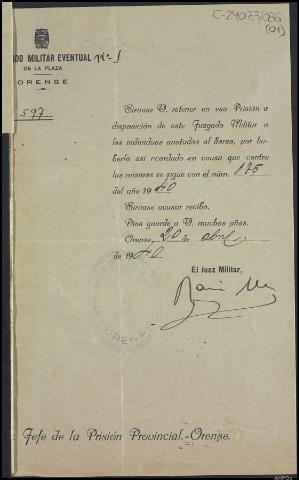 C-24073/086
(01)
DO MILITAR EVENTUAL nº 1
DE LA PLAZA
ORENSE
597
Sírvase V. retener en esa Prisión a
disposición de este Juzgado Militar a
los individuos anotados al dorso, por ha-
berlo así acordado en causa que contra
los mismos se sigue con el núm. 175
del año 1940
Sírvase acusar recibo.
Dios guarde a V. muchos años.
Orense, 20 de abril
de 1940
El Juez Militar,
ORENSE
Jefe de la Prisión Provincial.-Orense.
AHPOu